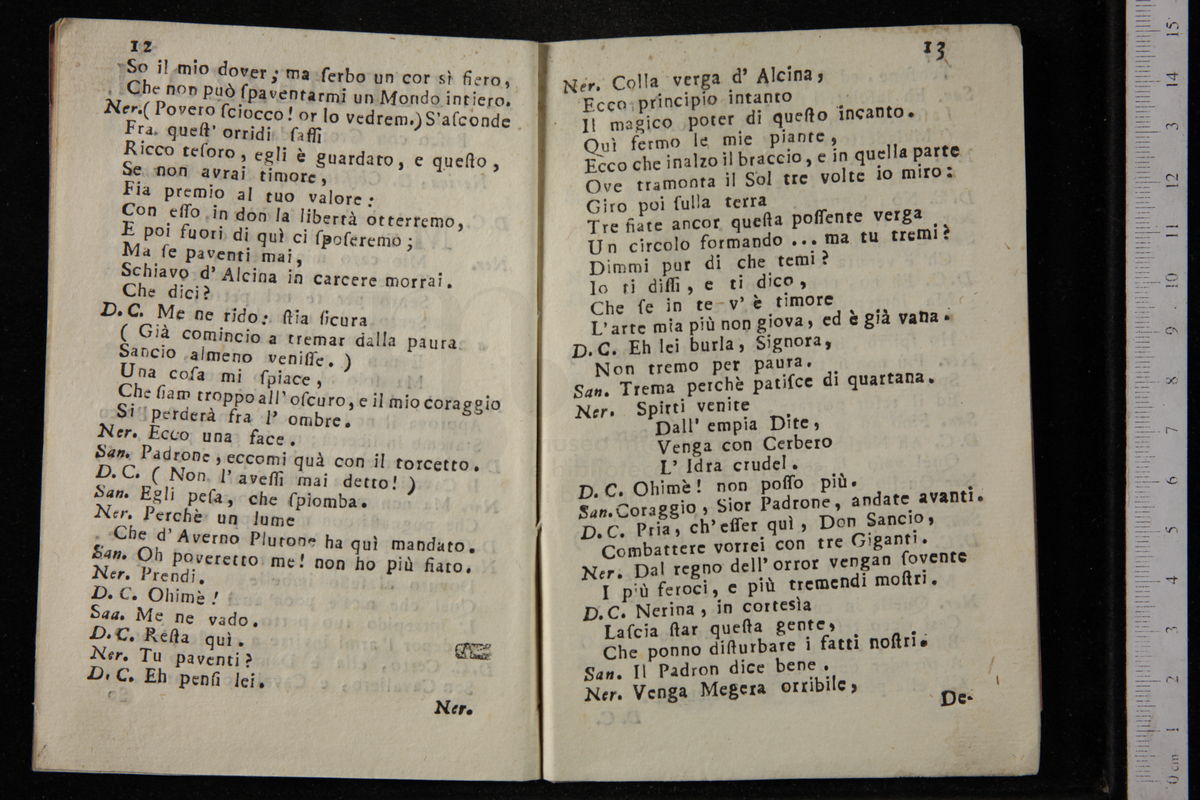 12
So il mio dover; ma ſerbo un cor sì fiero,
Che non può ſpaventarmi un Mondo intiero.
Ner. ( Povero ſciocco! or lo vedrem.) S'aſconde
Fra queſt' orridi ſaſſi
Ricco teſoro, egli è guardato, e queſto,
Se non avrai timore,
Fia premio al tuo valore:
Con eſſo in don la libertà otterremo,
E poi fuori di quì ci ſpoſeremo;
Ma ſe paventi mai,
Schiavo d' Alcina in carcere morrai.
Che dici?
D. C. Me ne rido: ſtia ſicura
( Già comincio a tremar dalla paura
Sancio almeno veniſſe. )
Una coſa mi ſpiace,
Che ſiam troppo all' oſcuro, e il mio coraggio
Si perderà fra l' ombre.
Ner. Ecco una face.
San. Padrone, eccomi quà con il torcetto.
D. C. ( Non l' aveſſi mai detto! )
San. Egli peſa, che ſpiomba.
Ner. Perchè un lume
Che d' Averno Plutone ha quì mandato.
San. Oh poveretto me! non ho più fiato.
Ner. Prendi.
D. C. Ohimè!
Saa. Me ne vado.
D. C. Reſta quì.
Ner. Tu paventi?
D. C. Eh penſi lei.
Ner.
13
Ner. Colla verga d' Alcina,
Ecco principio intanto
Il magico poter di queſto incanto.
Quì fermo le mie piante,
Ecco che inalzo il braccio, e in quella parte
Ove tramonta il Sol tre volte io miro:
Giro poi ſulla terra
Tre fiate ancor queſta poſſente verga
Un circolo formando ... ma tu tremi?
Dimmi pur di che temi?
Io ti diſſi, e ti dico,
Che ſe in te v' è timore
L' arte mia più non giova, ed è già vana.
D. C. Eh lei burla, Signora,
Non tremo per paura.
San. Trema perchè patiſce di quartana.
Ner. Spirti venite
Dall' empia Dite,
Venga con Cerbero
L' Idra crudel.
D. C. Ohimè! non poſſo più.
San. Coraggio, Sior Padrone, andate avanti.
D. C. Pria, ch' eſſer quì, Don Sancio,
Combattere vorrei con tre Giganti.
Ner. Dal regno dell' orror vengan ſovente
I più feroci, e più tremendi moſtri.
D. C. Nerina, in cortesìa
Laſcia ſtar queſta gente,
Che ponno diſturbare i fatti noſtri.
San. Il Padron dice bene.
Ner. Venga Megera orribile,
De-
0 cm 1 2 3 4 5 6 7 8 9 10 11 12 13 14 15